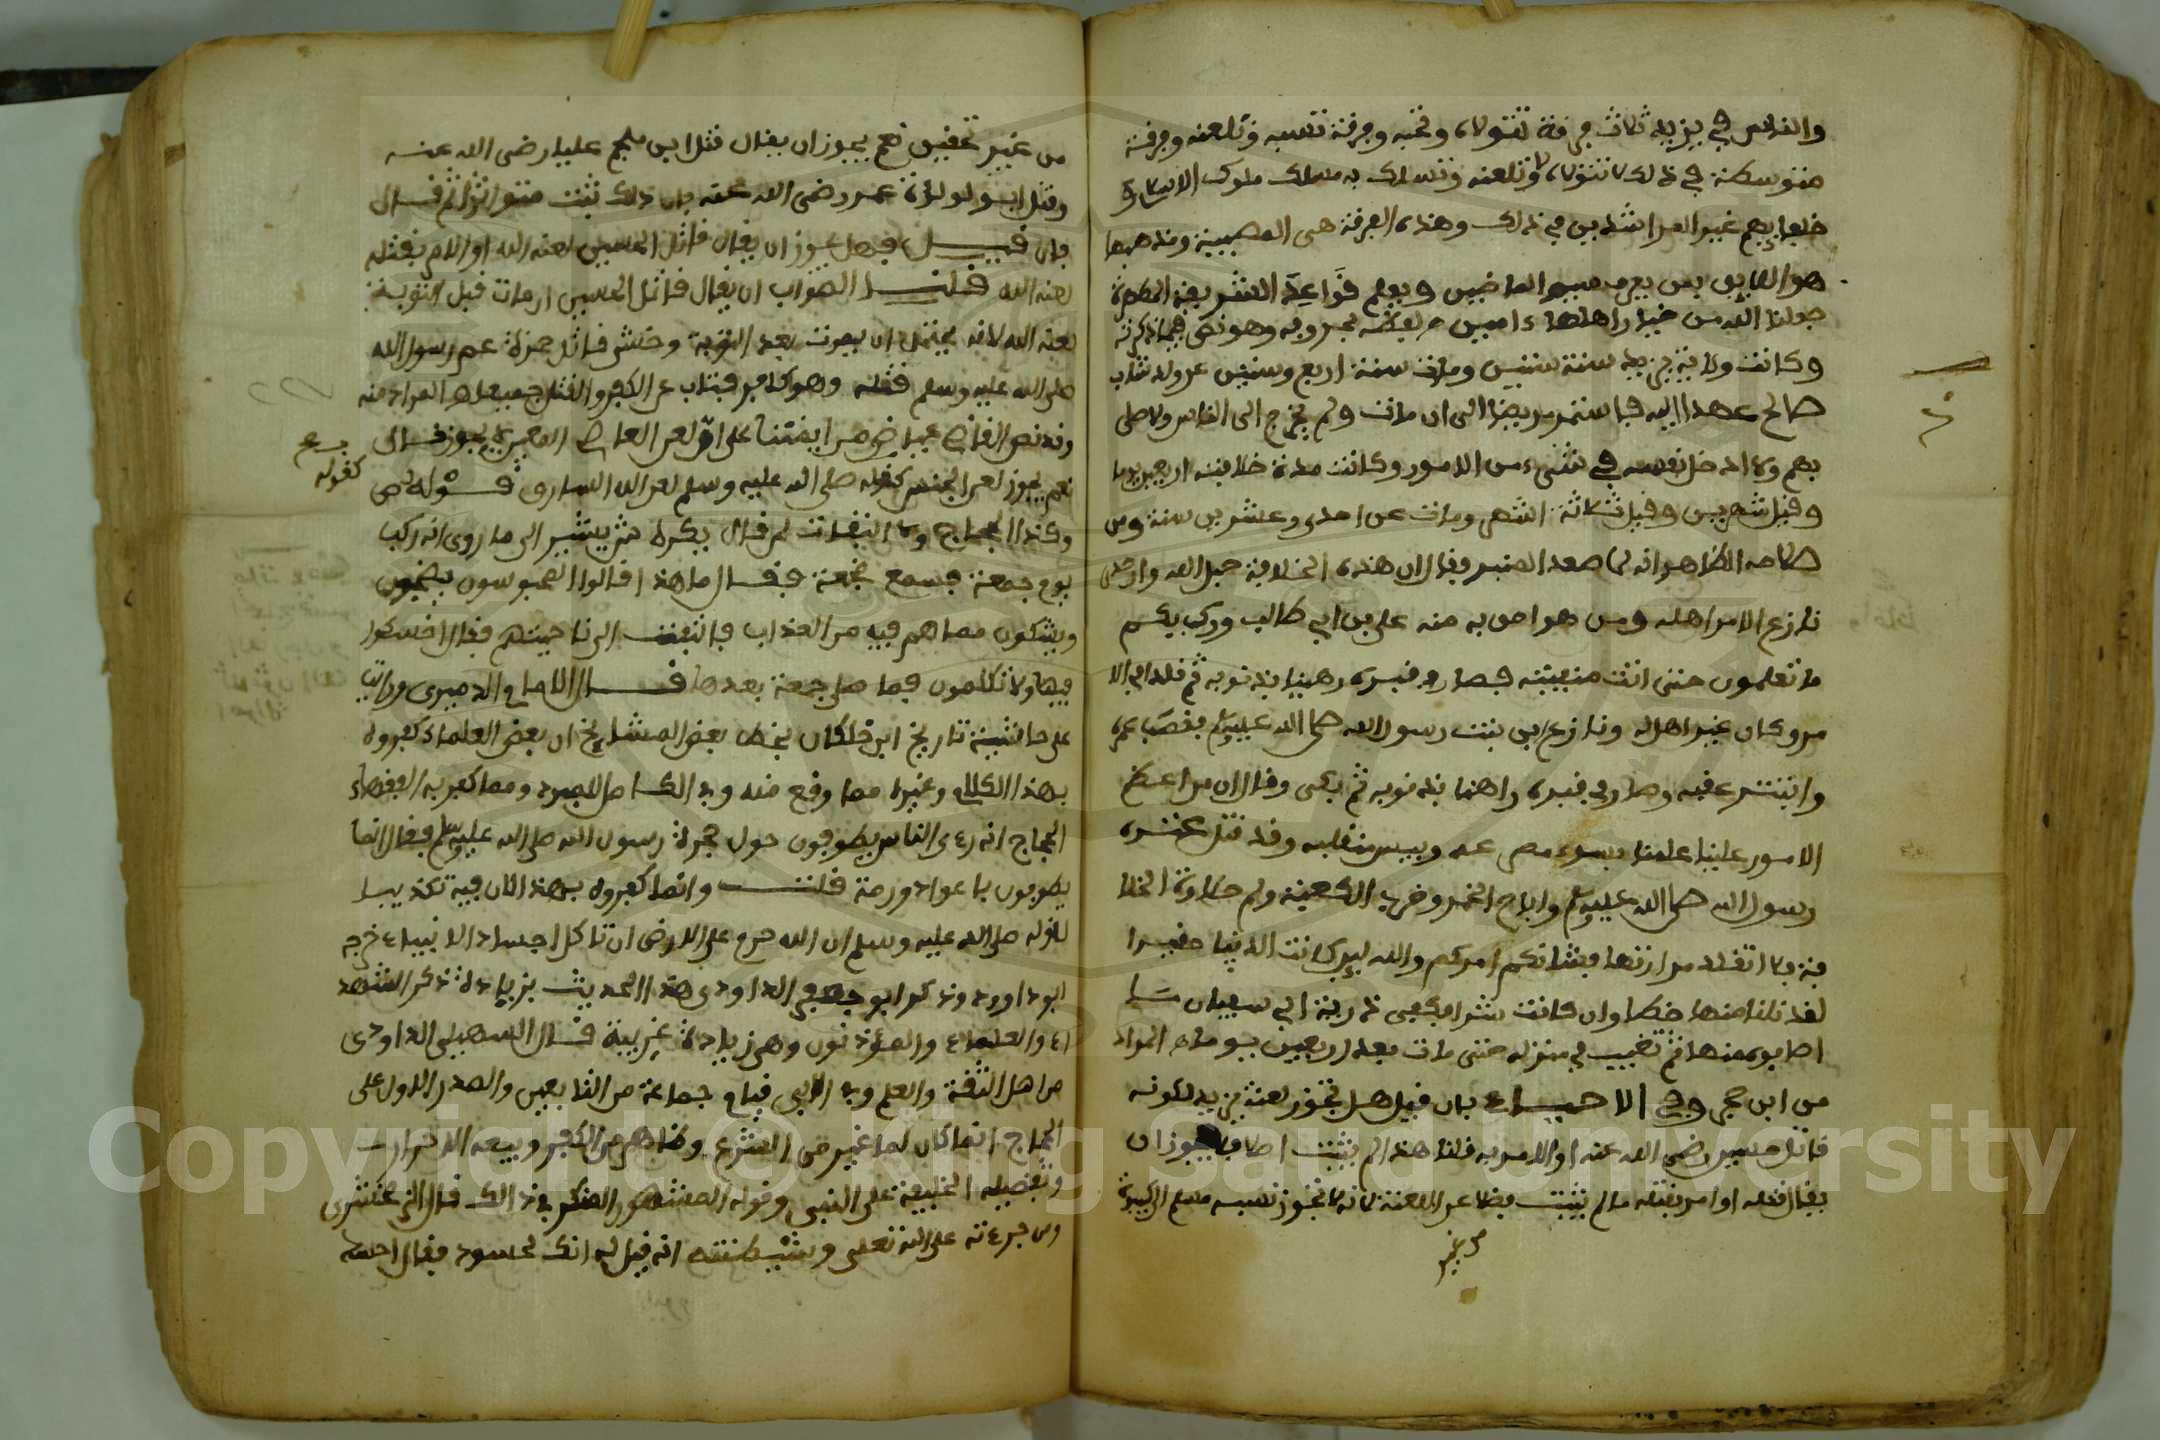 والناس في يزيد ثلاث فرقة تتولاه وتحبه وفرقة تسبه وتلعنه وفرقة
متوسطة في ذلك لا تتولاه ولا تلعنه وتسلك به مسلك ملوك الاسلام و
خلفايهم غير الراشدين في ذلك وهذه الفرقة هي المصيبة ومذهبها
هو اللايق بمن يعرف سير الماضين ويعلم قواعد الشريعة المطهرة
جعلنا الله من خيار اهلها ءامين بحروفه وهو نص فيما ذكرته
وكانت ولاية يزيد سنة ستين ومات سنة اربع وستين عن ولد شاب
صالح عهد اليه فاستمر مريضا الى ان مات ولم يخرج الى الناس ولا صلى
بهم ولا ادخل نفسه في شيء من الامور وكانت مدة خلافته اربعين يوما
وقيل شهرين وقيل ثلاثة اشهر ومات عن احدى وعشرين سنة ومن
صلاحه الظاهر انه لما صعد المنبر فقال ان هذه الخلافة حبل الله وان جدي
نازع الامر اهله ومن هو احق به منه علي بن ابي طالب وركب بكم
ما تعلمون حتى اتته منيته فصار في قبره رهينا بذنوبه ثم قلد ابي الا
مر وكان غير اهل له ونازع ابن بنت رسول الله صلى الله عليه وسلم فقصف عمره
وانبتر عقبه وصار في قبره راهنا بذنوبه ثم بكى وقال ان من اعظم
الامور علينا علمنا بسوء مصرعه وبيس منقلبه وقد قتل عترة
رسول الله صلى الله عليه وسلم واباح الخمر وخرب الكعبة ولم حلاوة الخلا
فة فلا اتقلد مرارتها فشانكم امركم والله لين كانت الدنيا خيرا
لقد نلنا منها حظا وان كانت شرا فكفى ذرية ابي سفيان ما
اصابوه منها ثم تغيب في منزله حتى مات بعد اربعين يوما المراد
من ابن حجر وفي الاحياء فان قيل هل تجوز لعنة يزيد لكونه
قاتل حسين رضي الله عنه او الامر به قلنا هذا لم يثبت اصلا فلا يجوز ان
يقال قتله او امر بقتله ما لم يثبت فضلا عن اللعنة لانه لا تجوز نسبة مسلم الى كبيرة
من غير
من غير تحقيق نعم يجوز ان يقال قتل ابن ملجم عليا رضي الله عنه
وقتل ابو لولؤة عمر رضي الله عنه فان ذلك ثبت متواترا ثم قال
فان قيل فهل يجوز ان يقال قاتل الحسين لعنه الله او الامر بقتله
لعنه الله قلنا الصواب ان يقال قاتل الحسين ان مات قبل التوبة
لعنه الله لانه يحتمل ان يموت بعد التوبة وحشي قاتل حمزة عم رسول الله
صلى الله عليه وسلم قتله وهو كافر فتاب عن الكفر والقتل جميعا المراد منه
وقد نص القاضي عياض من ايمتنا على ان لعن العاصي المعين لا يجوز قال
نعم يجوز لعن الجنس كقوله صلى الله عليه وسلم لعن الله السارق قوله
وكذا الحجاج ولا التفات لمن قال بكره يشير الى ما روي انه ركب
يوم جمعة فسمع ضجة فقال ما هذا فقالوا المحبوسون يضجون
ويشكون مما هم فيه من العذاب فالتفت الى ناحيتهم فقال اخسئوا
فيها ولا تكلمون فما صلى جمعة بعدها قال الامام الدميري ورايت
على حاشية تاريخ ابن خلكان بخط بعض المشايخ ان بعض العلماء كفروه
بهذا الكلام وغيره مما وقع منه وفي الكامل للمبرد ومما كفر به الفقهاء
الحجاج انه رءى الناس يطوفون حول حجرة رسول الله صلى الله عليه وسلم فقال انما
يطوفون باعواد ورمة قلت وانما كفروه بهذا لان فيه تكذيبا
لقوله صلى الله عليه وسلم ان الله حرم على الارض ان تاكل اجساد الانبياء خرجه
ابو داوود وذكر ابو جعفر الداودي هذا الحديث بزيادة ذكر الشهد
اء والعلماء والمؤذنون وهي زيادة غريبة قال السهيلي الداودي
من اهل الثقة والعلم وفي الابي قيام جماعة من التابعين والصدر الاول على
الحجاج انما كان لما غير من الشرع وظاهر من الكفر وبيعه الاحرار
وتفضيله الخليفة على النبي وقوله المشهور المنكر في ذالك قال الزمخشري
ومن جرءته على الله تعلى وشيطنته انه قيل له انك لحسود فقال احسد
كقوله